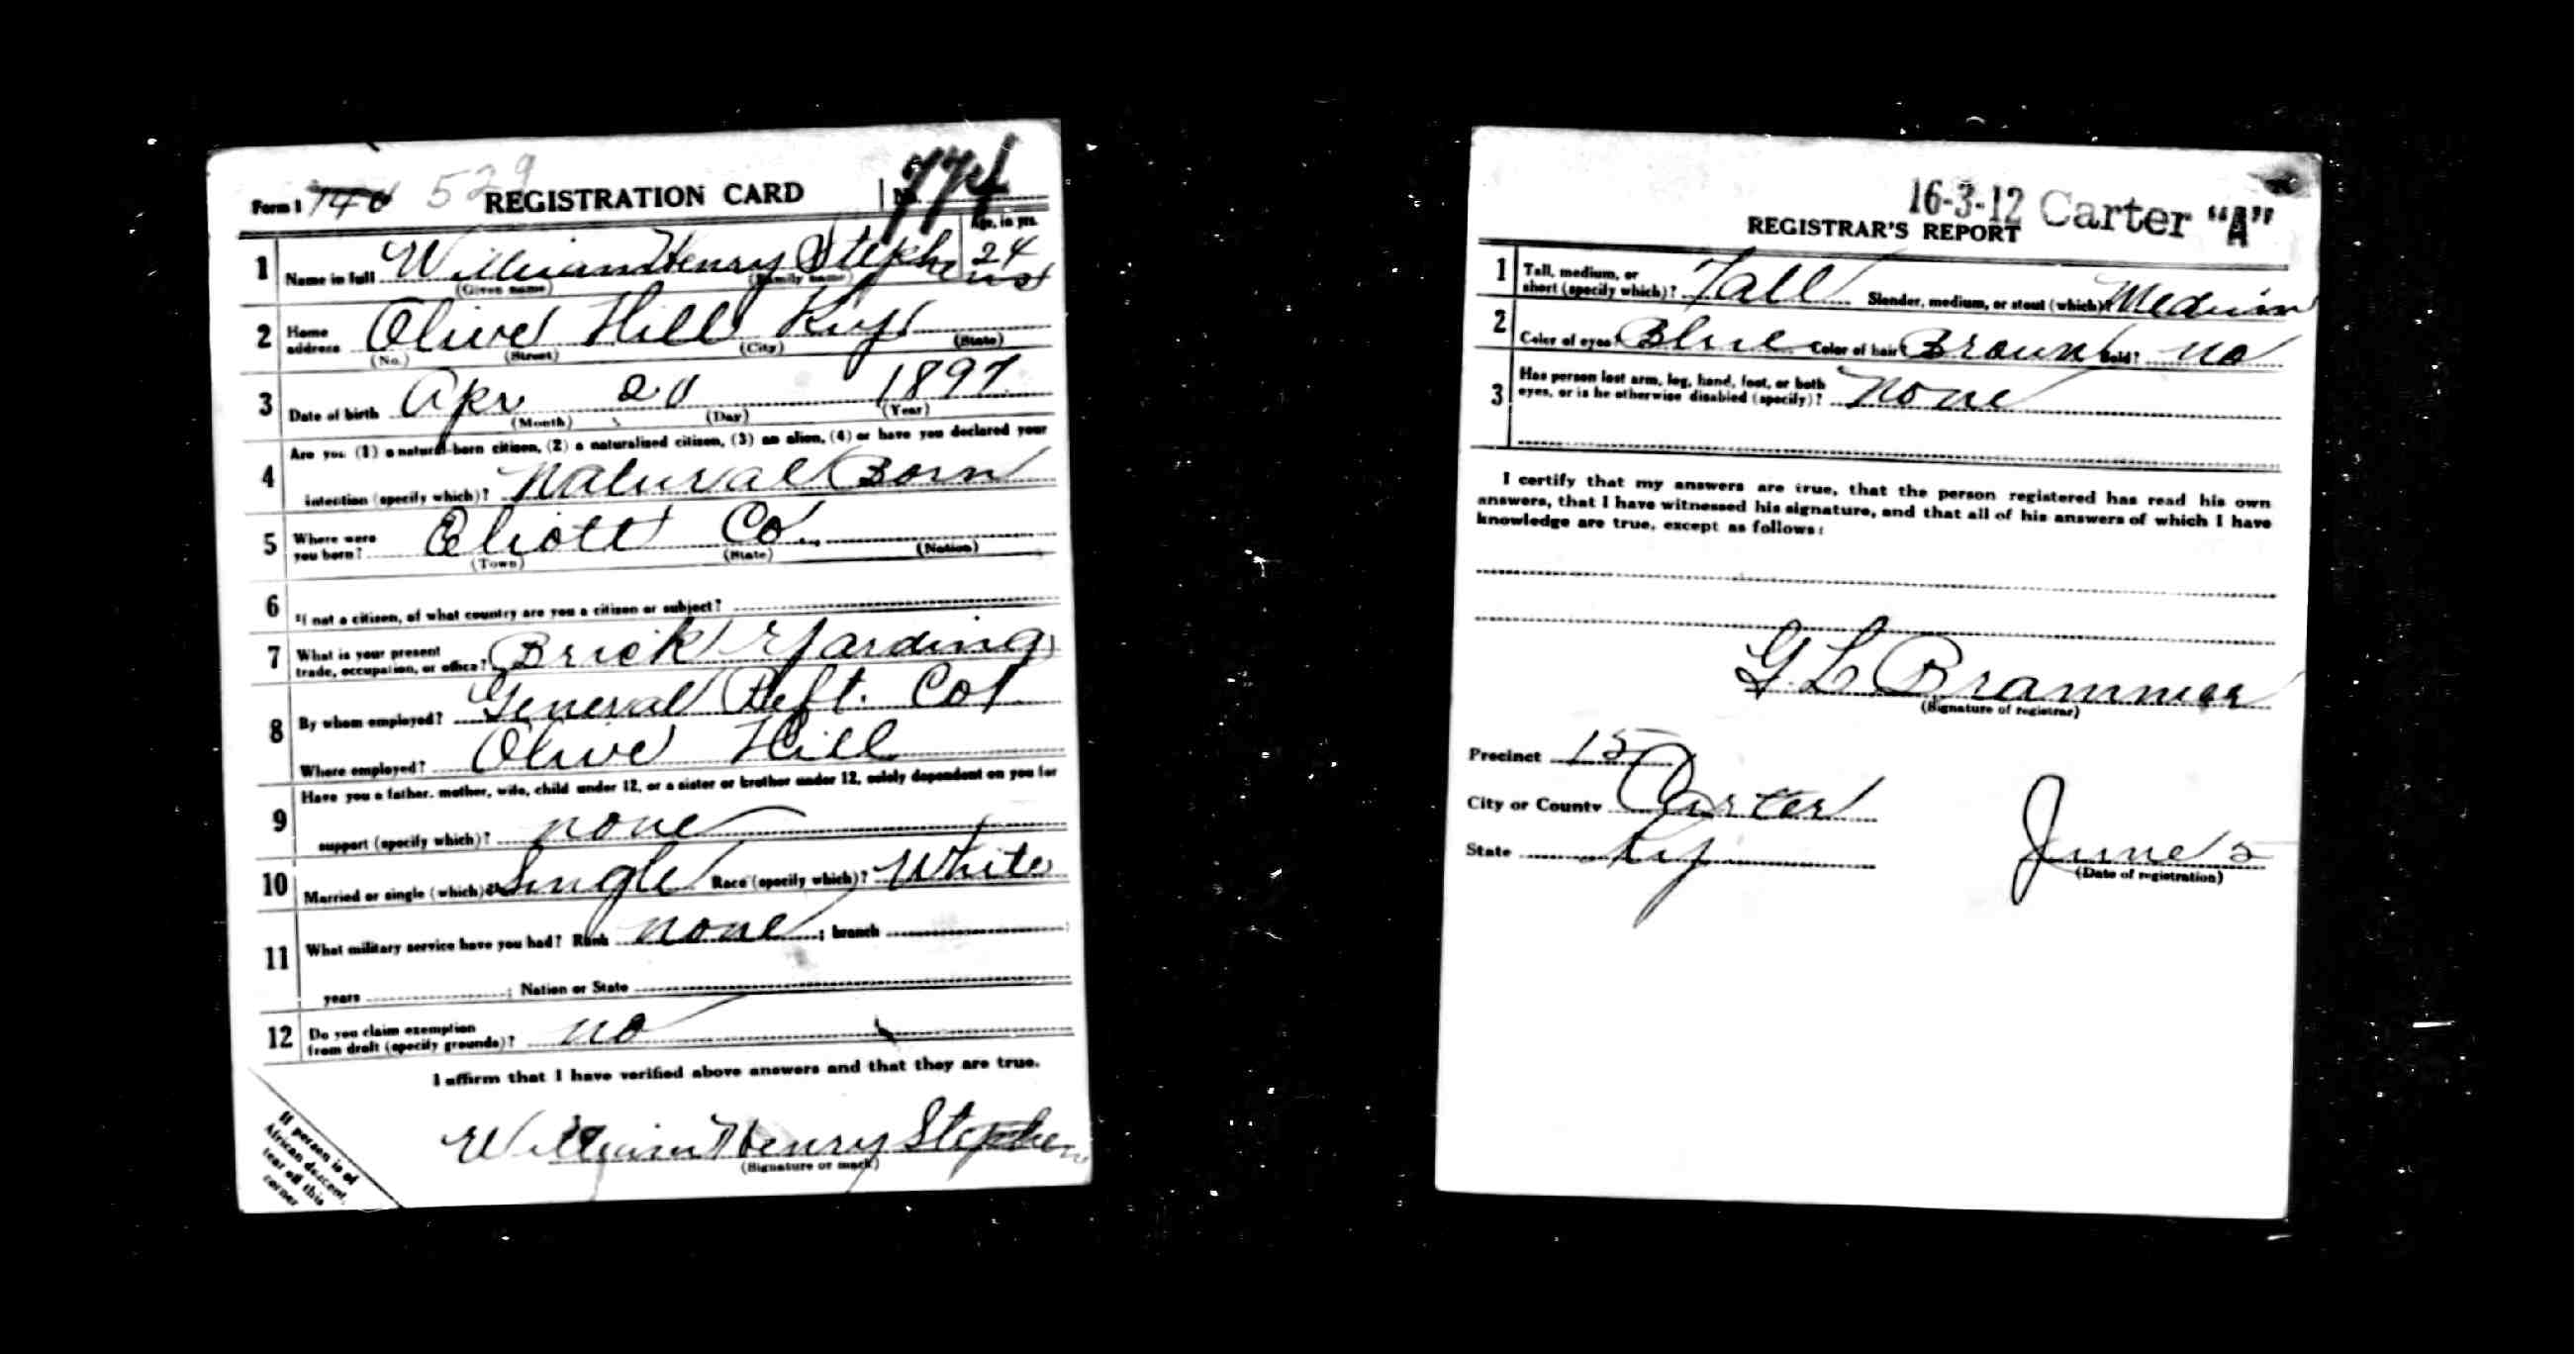 Form 1 740 529 REGISTRATION CARD No. 774
1 Name in full William Henry Stephens Age, in yrs. 24
(Given name) (Family name)
2 Home address Olive Hill Ky
(No.) (Street) (City) (State)
3 Date of birth Apr 20 1897
(Month) (Day) (Year)
4 Are you (1) a natural-born citizen, (2) a naturalized citizen, (3) an alien, (4) or have you declared your
intention (specify which)? Natural Born
5 Where were you born? Eliott Co.
(Town) (State) (Nation)
6 If not a citizen, of what country are you a citizen or subject?
7 What is your present trade, occupation, or office? Brick Yarding
8 By whom employed? General Reft. Co
Where employed? Olive Hill
9 Have you a father, mother, wife, child under 12, or a sister or brother under 12, solely dependent on you for
support (specify which)? none
10 Married or single (which)? Single Race (specify which)? White
11 What military service have you had? Rank none ; branch
years ; Nation or State
12 Do you claim exemption from draft (specify grounds)? no
I affirm that I have verified above answers and that they are true.
William Henry Stephen
(Signature or mark)
If person is of
African descent,
tear off this
corner
16-3-12 Carter "A"
REGISTRAR'S REPORT
1 Tall, medium, or short (specify which)? Tall Slender, medium, or stout (which)? Medium
2 Color of eyes? Blue Color of hair? Brown Bald? no
3 Has person lost arm, leg, hand, foot, or both
eyes, or is he otherwise disabled (specify)? none
I certify that my answers are true, that the person registered has read his own
answers, that I have witnessed his signature, and that all of his answers of which I have
knowledge are true, except as follows:
G. L. Brammer
(Signature of registrar)
Precinct 15
City or County Carter
State Ky
June 5
(Date of registration)